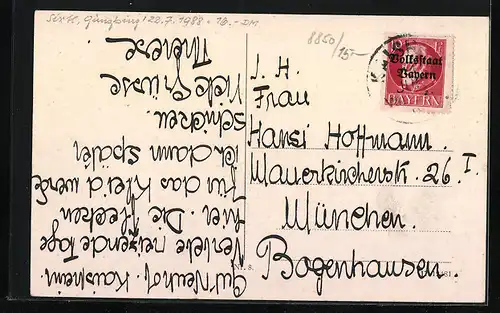 Sträß, Günzburg 22.7.1988 13.-DM
8850/15-
10
Volksstaat
Bayern
BAYERN
I. H.
Frau
Hansi Hoffmann.
Mauerkircherstr. 26 I.
München.
Bogenhausen.
Gut Neuhof. Kaisheim.
Verlebe reizende Tage
hier. Die Flecken
für das Kleid werde
ich dann später
schicken.
Viele Grüsse
Therese